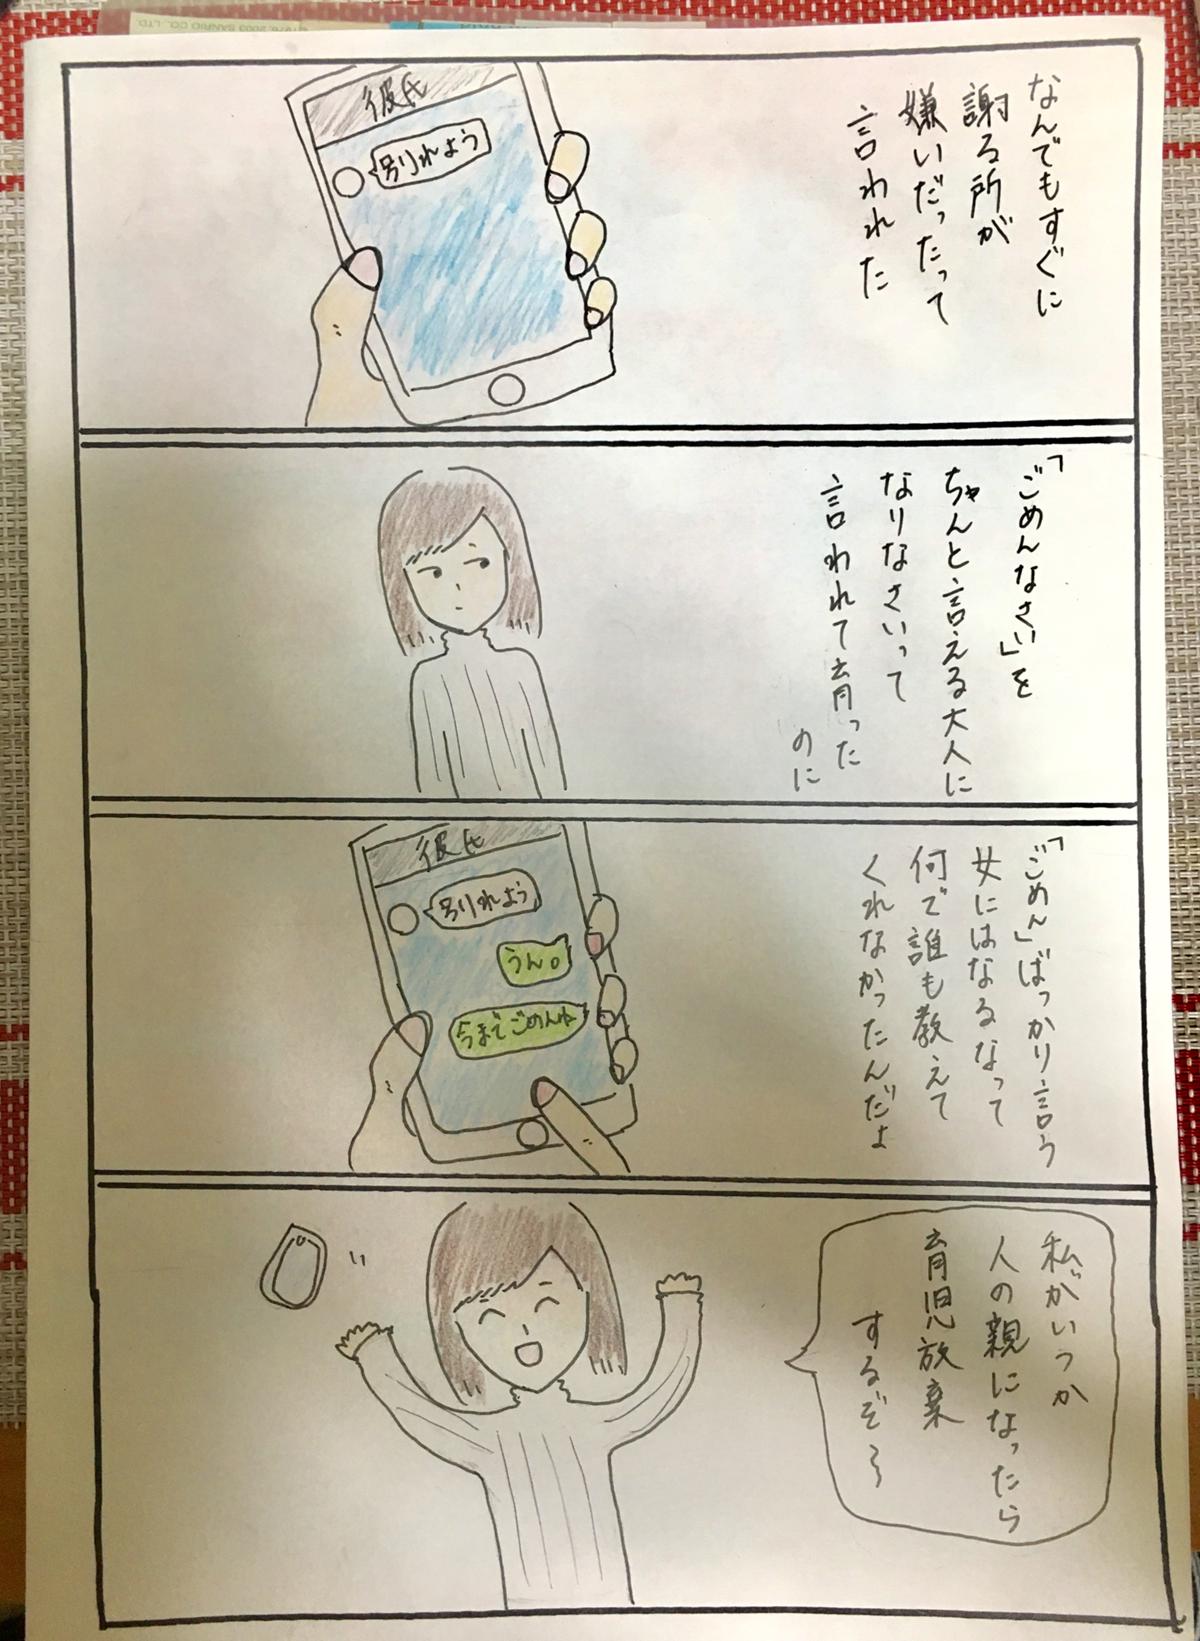 ©1976, 2003 SANRIO CO., LTD.
なんでもすぐに
謝る所が
嫌いだったって
言われた
彼氏
別れよう
「ごめんなさい」を
ちゃんと言える大人に
なりなさいって
言われて育った
のに
「ごめん」ばっかり言う
女にはなるなって
何で誰も教えて
くれなかったんだよ
彼氏
別れよう
うん。
今までごめんね
私がいつか
人の親になったら
育児放棄
するぞ〜